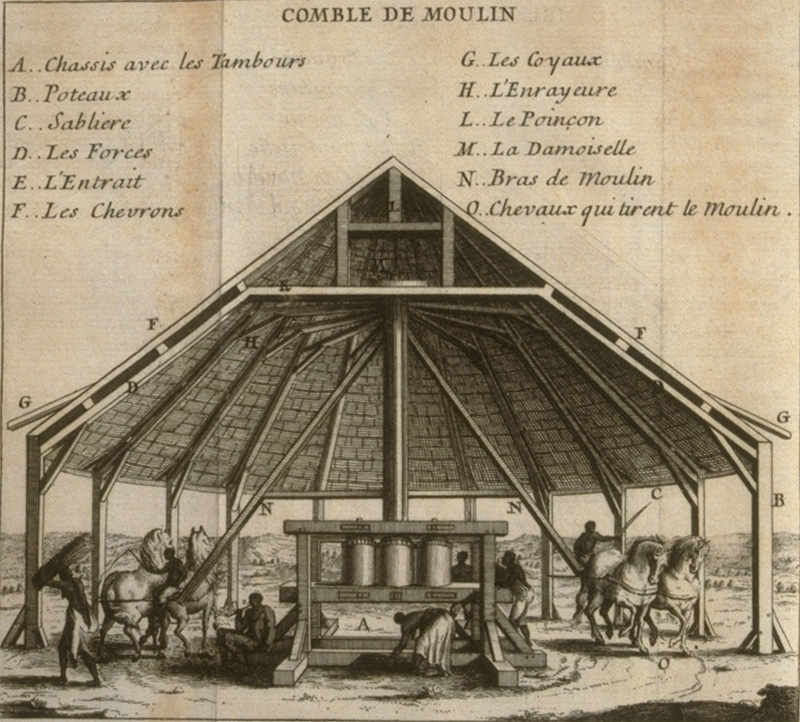 COMBLE DE MOULIN
A..Chassis avec les Tambours
B..Poteaux
C..Sabliere
D..Les Forces
E..L'Entrait
F..Les Chevrons
G..Les Coyaux
H..L'Enrayeure
L..Le Poinçon
M..La Damoiselle
N..Bras de Moulin
O..Chevaux qui tirent le Moulin.
L
M
E
F
F
H
D
D
G
G
N
N
C
B
A
O